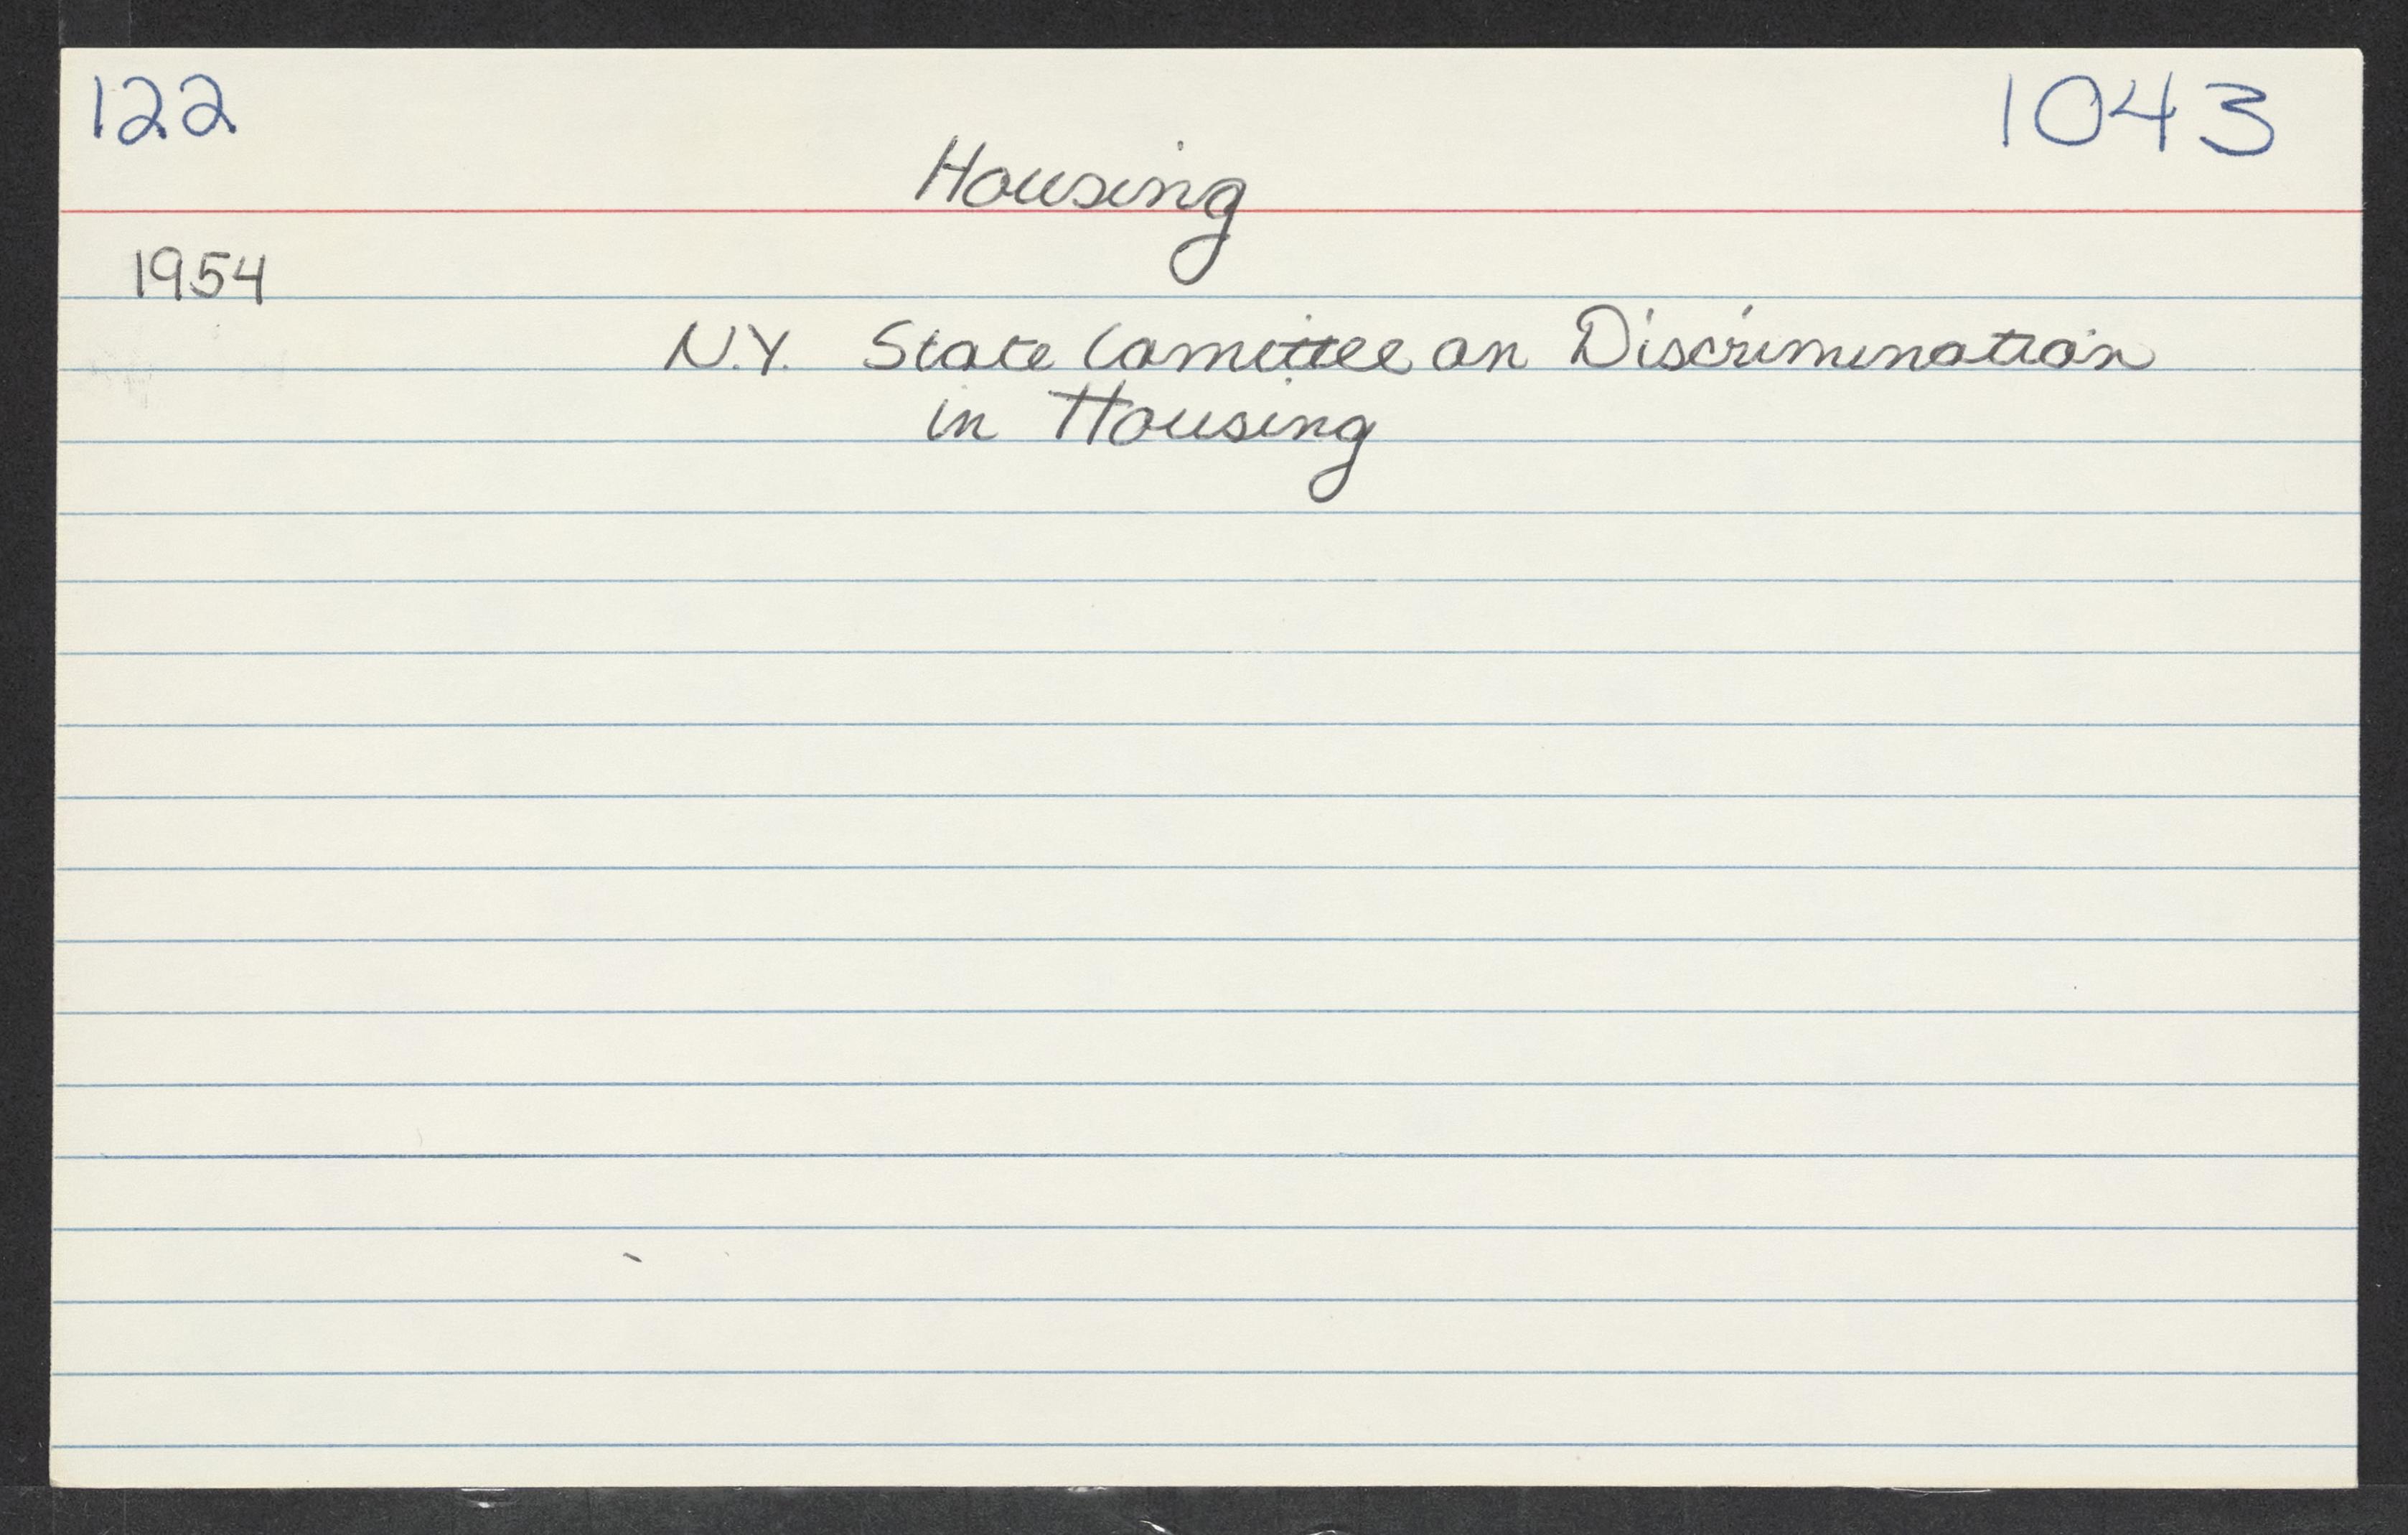 122
1043
Housing
1954
N.Y. State Comittee on Discrimination
in Housing